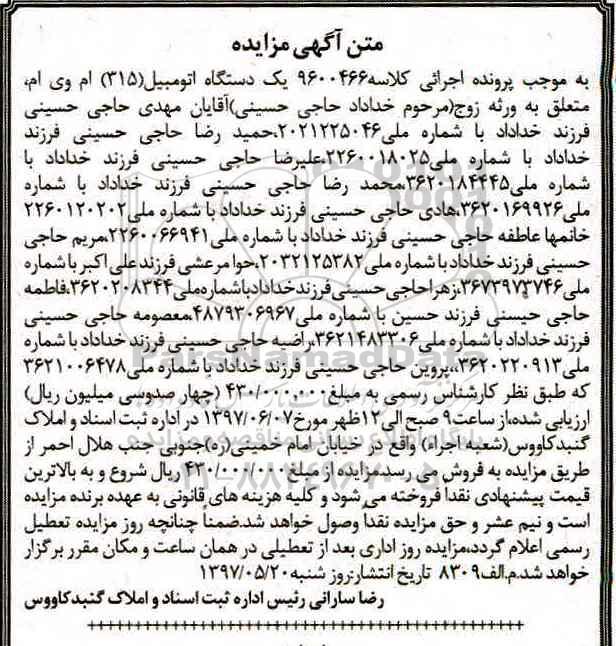 متن آگهی مزایده
به موجب پرونده اجرائی کلاسه۹۶۰۰۴۶۶ یک دستگاه اتومبیل(۳۱۵) ام وی ام،
متعلق به ورثه زوج(مرحوم خداداد حاجی حسینی)آقایان مهدی حاجی حسینی
فرزند خداداد با شماره ملی۲۰۲۱۲۲۵۰۴۶،حمید رضا حاجی حسینی فرزند
خداداد با شماره ملی۲۲۶۰۰۱۸۰۲۵،علیرضا حاجی حسینی فرزند خداداد با
شماره ملی۳۶۲۰۱۸۴۴۴۵،محمد رضا حاجی حسینی فرزند خداداد با شماره
ملی۳۶۲۰۱۶۹۹۲۶،هادی حاجی حسینی فرزند خداداد با شماره ملی۲۲۶۰۱۲۰۲۰۲
خانمها عاطفه حاجی حسینی فرزند خداداد با شماره ملی۲۲۶۰۰۶۶۹۴۱،مریم حاجی
حسینی فرزند خداداد با شماره ملی۲۰۳۲۱۲۵۳۸۲،حوا مرعشی فرزند علی اکبر با شماره
ملی۳۶۷۳۹۷۳۷۴۶،زهرا حاجی حسینی فرزند خداداد با شماره ملی۳۶۲۰۲۰۸۳۴۴،فاطمه
حاجی حیسنی فرزند حسین با شماره ملی۴۸۷۹۳۰۶۹۶۷،معصومه حاجی حسینی
فرزند خداداد با شماره ملی۳۶۲۱۴۸۳۳۰۶،راضیه حاجی حسینی فرزند خداداد با شماره
ملی۳۶۲۰۲۲۰۹۱۳،،پروین حاجی حسینی فرزند خداداد با شماره ملی۳۶۲۱۰۰۶۴۷۸
که طبق نظر کارشناس رسمی به مبلغ۴۳۰/۰۰۰,۰۰۰ (چهار صدوسی میلیون ریال)
ارزیابی شده،از ساعت۹ صبح الی۱۲ظهر مورخ۱۳۹۷/۰۶/۰۷ در اداره ثبت اسناد و املاک
گنبدکاووس(شعبه اجراء) واقع در خیابان امام خمینی(ره)جنوبی جنب هلال احمر از
طریق مزایده به فروش می رسد.مزایده از مبلغ ۴۳۰/۰۰۰/۰۰۰ریال شروع و به بالاترین
قیمت پیشنهادی نقدا فروخته می شود و کلیه هزینه های قانونی به عهده برنده مزایده
است و نیم عشر و حق مزایده نقداً وصول خواهد شد.ضمناً چنانچه روز مزایده تعطیل
رسمی اعلام گردد،مزایده روز اداری بعد از تعطیلی در همان ساعت و مکان مقرر برگزار
خواهد شد.م.الف۸۳۰۹ تاریخ انتشار:روز شنبه۱۳۹۷/۰۵/۲۰
رضا سارانی رئیس اداره ثبت اسناد و املاک گنبدکاووس
ParsNamadData